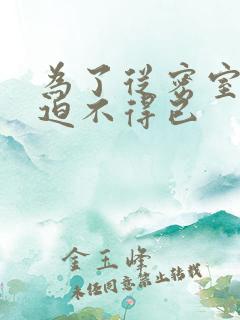 為了從密室
迫不得已
金玉峰
未经同意禁止转载